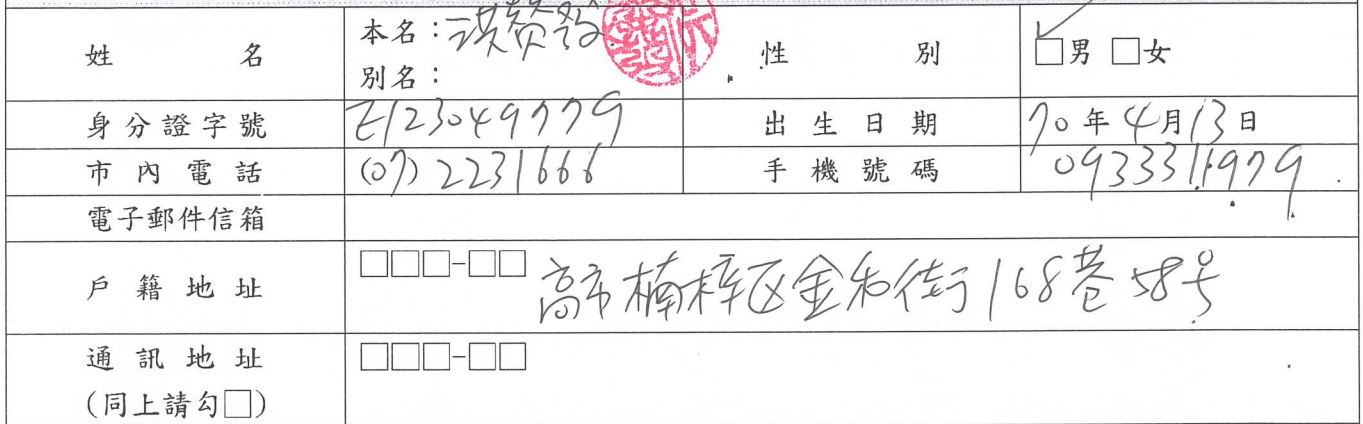 姓名 本名：洪贊發 性別 □男 □女
別名：
身分證字號 E123049779 出生日期 70年4月13日
市內電話 (07)2231666 手機號碼 0933311979
電子郵件信箱
戶籍地址 □□□-□□ 高市楠梓区金和街168巷58号
通訊地址 □□□-□□
(同上請勾□)